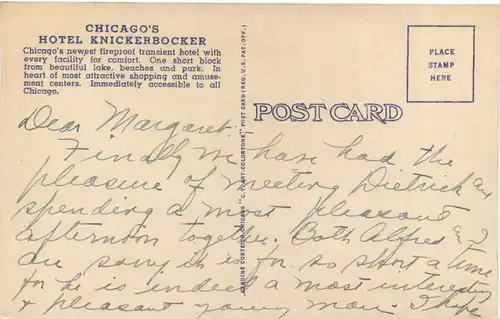 CHICAGO'S
HOTEL KNICKERBOCKER
Chicago's newest fireproof transient hotel with
every facility for comfort. One short block
from beautiful lake, beaches and park. In
heart of most attractive shopping and amuse-
ment centers. Immediately accessible to all
Chicago.
PLACE
STAMP
HERE
POST CARD
GENUINE CURTEICH-CHICAGO "C.T. ART-COLORTONE" POST CARD (REG. U.S. PAT. OFF.)
Dear Margaret:
Finally we have had the
pleasure of meeting Dietrich and
spending a most pleasant
afternoon together. Both Alfred and I
are sorry it is for so short a time
for he is indeed a most interesting
& pleasant young man. I hope